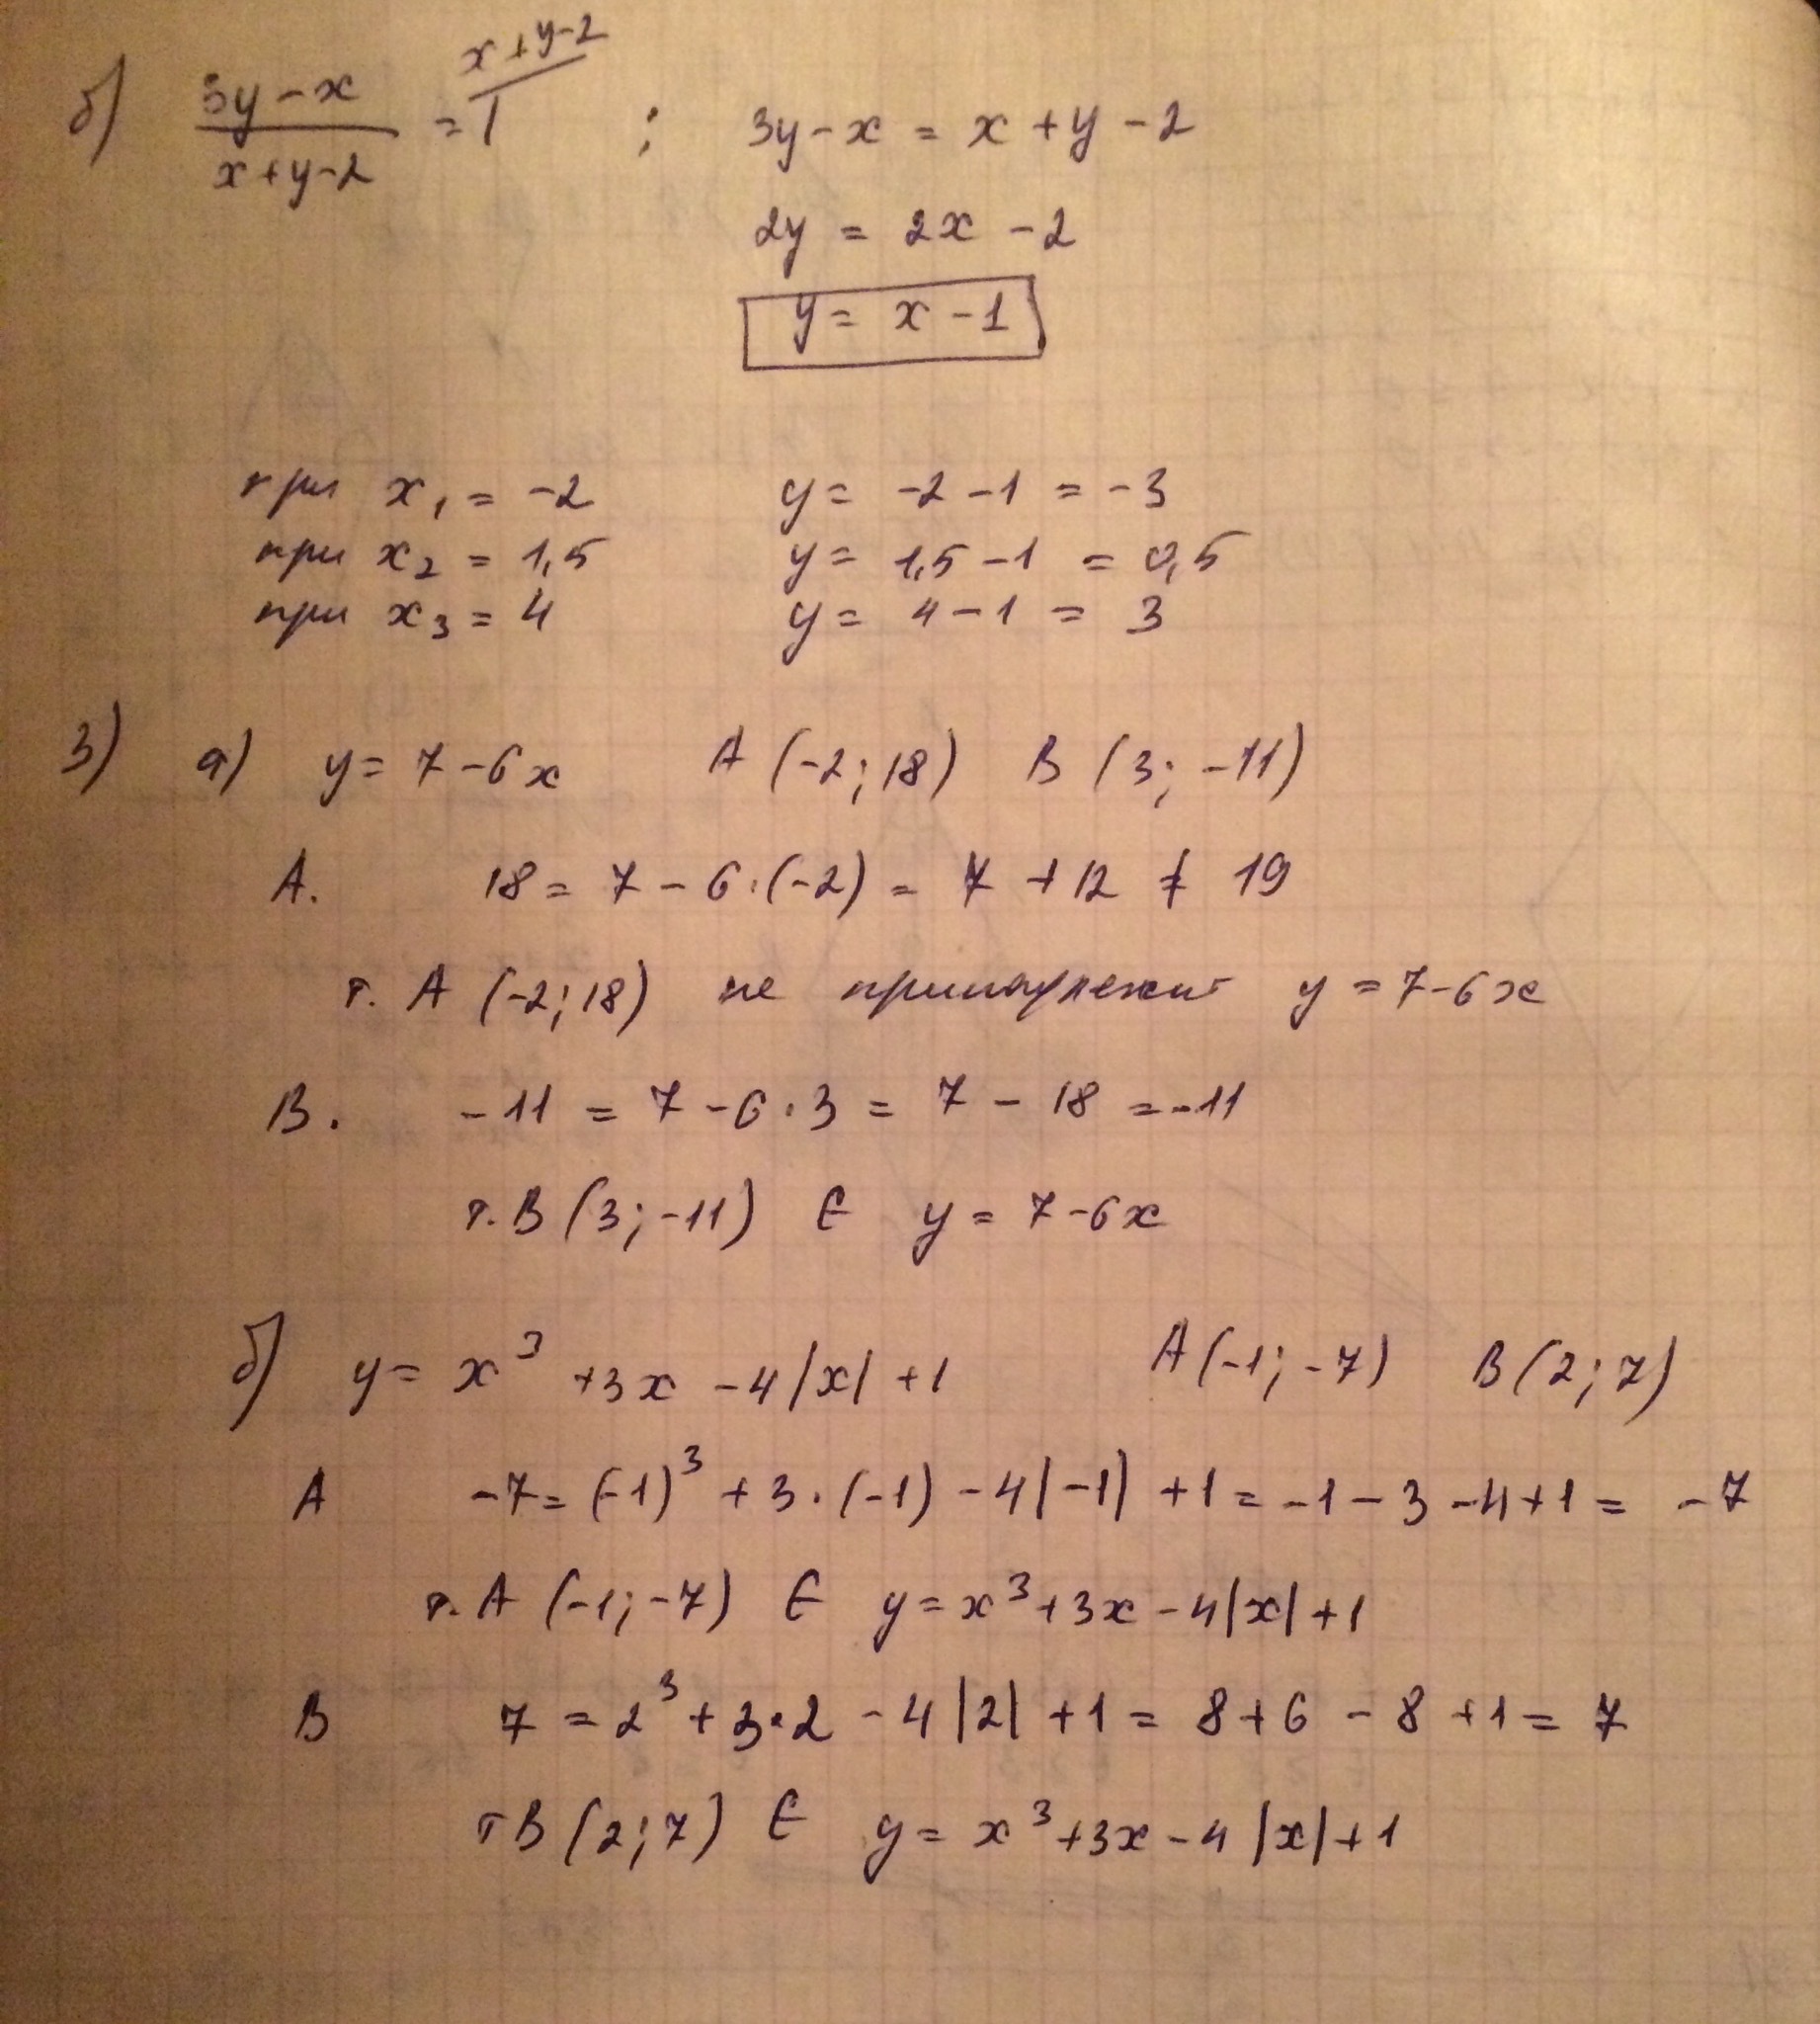 б) (3y-x)/(x+y-2) = 1 x+y-2 ; 3y-x = x+y-2
2y = 2x -2
y = x-1
при x₁ = -2 y = -2-1 = -3
при x₂ = 1,5 y = 1,5-1 = 0,5
при x₃ = 4 y = 4-1 = 3
3) а) y = 7-6x A (-2; 18) B (3; -11)
A. 18 = 7-6·(-2) = 7+12 ≠ 19
т. A (-2; 18) не принадлежит y = 7-6x
B. -11 = 7-6·3 = 7-18 = -11
т. B (3; -11) ∈ y = 7-6x
б) y = x³+3x-4|x|+1 A(-1; -7) B(2; 7)
A -7 = (-1)³+3·(-1)-4|-1|+1 = -1-3-4+1 = -7
т. A (-1; -7) ∈ y = x³+3x-4|x|+1
B 7 = 2³+3·2-4|2|+1 = 8+6-8+1 = 7
т B (2; 7) ∈ y = x³+3x-4|x|+1